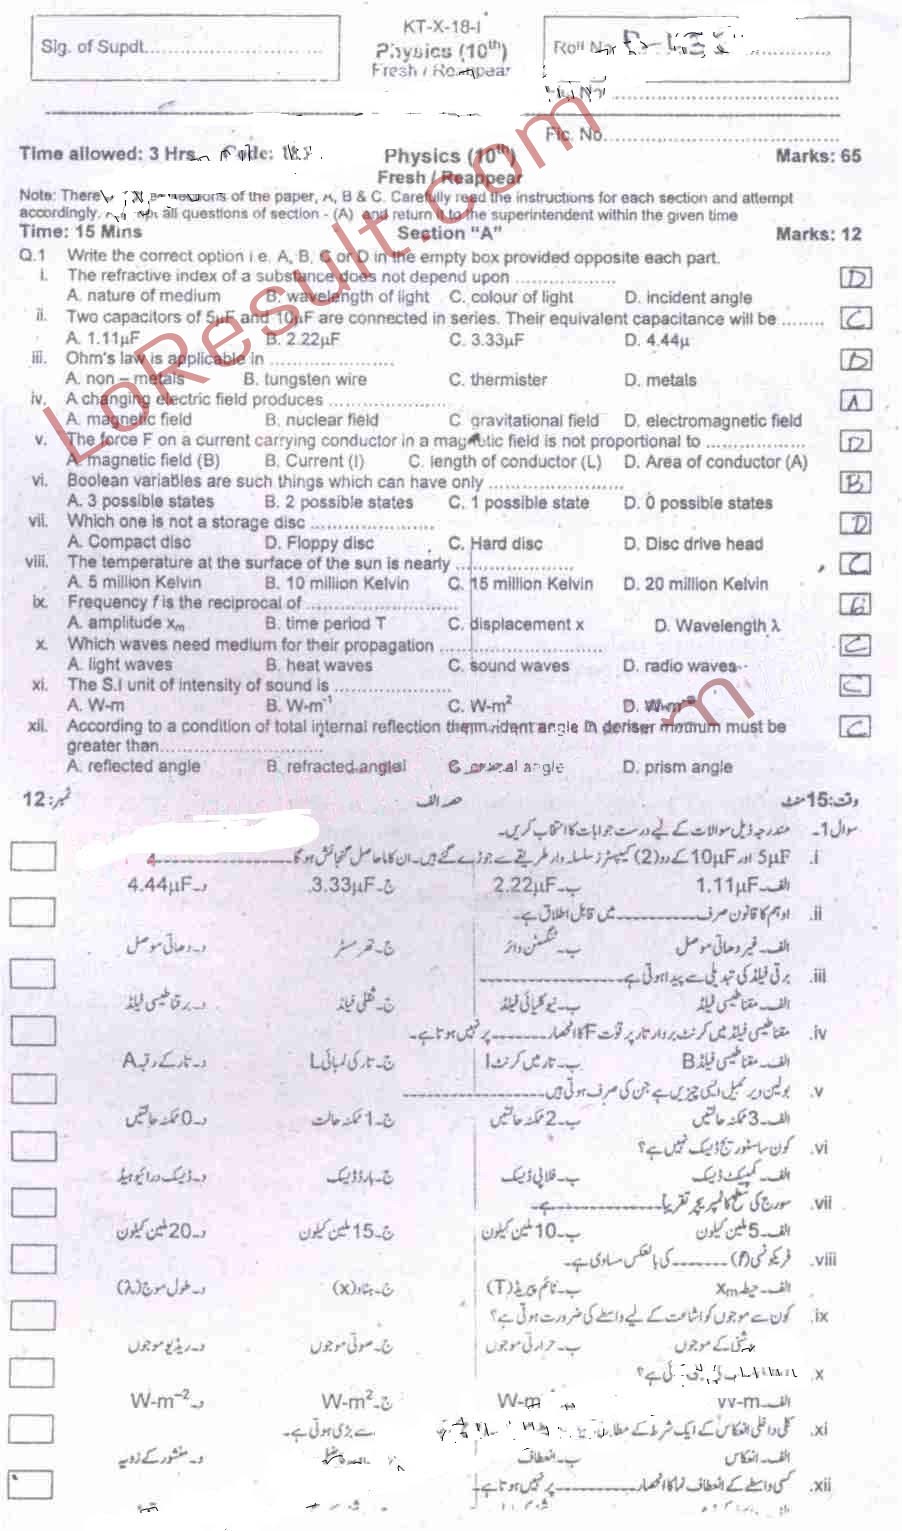 KT-X-18-I
Sig. of Supdt..............................
Physics (10th)
Roll No
Fresh / Reappear
Fic. No.
Time allowed: 3 Hrs Code:
Physics (10th)
Marks: 65
Fresh / Reappear
Note: There of the paper, A, B & C. Carefully read the instructions for each section and attempt
accordingly. all questions of section - (A) and return it to the superintendent within the given time
Time: 15 Mins Section "A" Marks: 12
Q.1 Write the correct option i e. A, B, C or D in the empty box provided opposite each part.
i. The refractive index of a substance does not depend upon .................. D
A. nature of medium B. wavelength of light C. colour of light D. incident angle
ii. Two capacitors of 5µF and 10µF are connected in series. Their equivalent capacitance will be ........ C
A. 1.11µF B. 2.22µF C. 3.33µF D. 4.44µ
iii. Ohm's law is applicable in ....................... D
A. non – metals B. tungsten wire C. thermister D. metals
iv. A changing electric field produces ...................... A
A. magnetic field B. nuclear field C gravitational field D. electromagnetic field
v. The force F on a current carrying conductor in a magnetic field is not proportional to .................. D
A. magnetic field (B) B. Current (I) C. length of conductor (L) D. Area of conductor (A)
vi. Boolean variables are such things which can have only ........................ B
A. 3 possible states B. 2 possible states C. 1 possible state D. 0 possible states
vii. Which one is not a storage disc ...................... D
A. Compact disc D. Floppy disc C. Hard disc D. Disc drive head
viii. The temperature at the surface of the sun is nearly ..................... C
A. 5 million Kelvin B. 10 million Kelvin C. 15 million Kelvin D. 20 million Kelvin
ix. Frequency f is the reciprocal of ...........................
A. amplitude xm B. time period T C. displacement x D. Wavelength λ
x. Which waves need medium for their propagation ............................. C
A. light waves B. heat waves C. sound waves D. radio waves
xi. The S.I unit of intensity of sound is ..................... C
A. W-m B. W-m-1 C. W-m2 D. W-m
xii. According to a condition of total internal reflection the angle in denser medium must be C
greater than.............................
A. reflected angle B. refracted angle C angle D. prism angle
وقت:15منٹ حصہ الف نمبر:12
سوال1۔ مندرجہ ذیل سوالات کے لیے درست جوابات کا انتخاب کریں۔
i. 5µF اور 10µF کے دو(2) کیپسٹرز سلسلہ وار طریقے سے جوڑے گئے ہیں۔ ان کا حاصل گنجائش ہوگا
الف۔1.11µF ب۔2.22µF ج۔3.33µF د۔4.44µF
ii. اوہم کا قانون صرف ---------- میں قابل اطلاق ہے۔
الف۔ غیر دھاتی موصل ب۔ ٹنگسٹن وائر ج۔ تھرمسٹر د۔ دھاتی موصل
iii. برقی فیلڈ کی تبدیلی سے پیدا ہوتی ہے۔
الف۔ مقناطیسی فیلڈ ب۔ نیوکلیائی فیلڈ ج۔ ثقلی فیلڈ د۔ برقناطیسی فیلڈ
iv. مقناطیسی فیلڈ میں کرنٹ بردار تار پر قوت F کا انحصار ------- پر نہیں ہوتا ہے۔
الف۔ مقناطیسی فیلڈ B ب۔ تار میں کرنٹ I ج۔ تار کی لمبائی L د۔ تار کے رقبہ A
v. بولین ویریبل ایسی چیزیں ہے جن کی صرف ہوتی ہیں
الف۔ 3 ممکنہ حالتیں ب۔ 2 ممکنہ حالتیں ج۔ 1 ممکنہ حالت د۔ 0 ممکنہ حالتیں
vi. کون سا سٹوریج ڈیسک نہیں ہے؟
الف۔ کمپیکٹ ڈیسک ب۔ فلاپی ڈیسک ج۔ ہارڈ ڈیسک د۔ ڈیسک ڈرائیو ہیڈ
vii. سورج کی سطح کا ٹمپریچر تقریباً ---------- ہے۔
الف۔ 5 ملین کیلون ب۔ 10 ملین کیلون ج۔ 15 ملین کیلون د۔ 20 ملین کیلون
viii. فریکونسی (f) ------- کی بالعکس مساوی ہے۔
الف۔ حیطہ xm ب۔ ٹائم پیریڈ (T) ج۔ ہٹاؤ (x) د۔ طول موج (λ)
ix. کون سے موجوں کو اشاعت کے لیے واسطے کی ضرورت ہوتی ہے؟
کے موجوں ب۔ حرارتی موجوں ج۔ صوتی موجوں د۔ ریڈیو موجوں
x. ہے؟
الف۔ W-m ج۔ W-m2 د۔ W-m−2
xi. کلی داخلی انعکاس کے ایک شرط کے مطابق سے بڑی ہوتی ہے۔
الف۔ انعکاس ب۔ انعطاف د۔ منشور کے زاویہ
xii. کسی واسطے کے انعطاف نما کا انحصار ---------- پر نہیں ہوتا ہے۔
LoResult.com